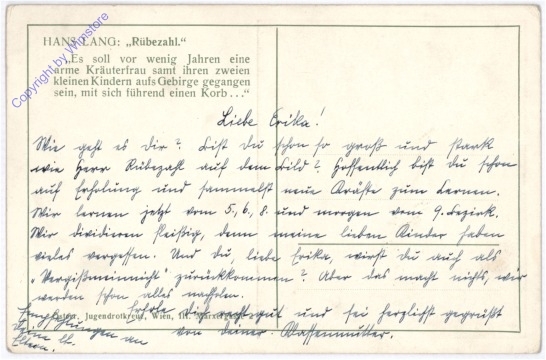 HANS LANG: „Rübezahl.“
„Es soll vor wenig Jahren eine
arme Kräuterfrau samt ihren zweien
kleinen Kindern aufs Gebirge gegangen
sein, mit sich führend einen Korb . . .“
Copyright by Winstore
Liebe Erika!
Wie geht es dir? Bist du schon so groß und stark
wie Herr Rübezahl auf dem Bild? Hoffentlich bist du schon
auf Erholung und sammelst neue Kräfte zum Lernen.
Wir lernen jetzt vom 5., 6., 8. und morgen vom 9. Bezirk.
Wir dividieren fleißig, denn meine lieben Kinder haben
vieles vergessen. Und du, liebe Erika, wirst du auch als
„Vergißmeinnicht“ zurückkommen? Aber das macht nichts, wir
werden schon alles nachholen.
Erhole dich recht gut und sei herzlichst gegrüßt
von deiner Klassenmutter.
Jugendrotkreuz, Wien, III. Marxergasse
Empfehlungen an
Deine lb.
Eltern.